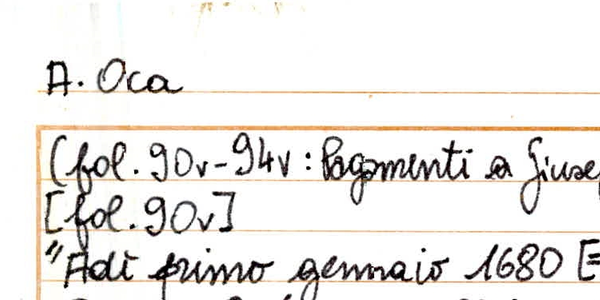 A. Oca
(fol. 90v-94v: Pagamenti a Giuse
[fol. 90v]
"Adì primo gennaio 1680 [=